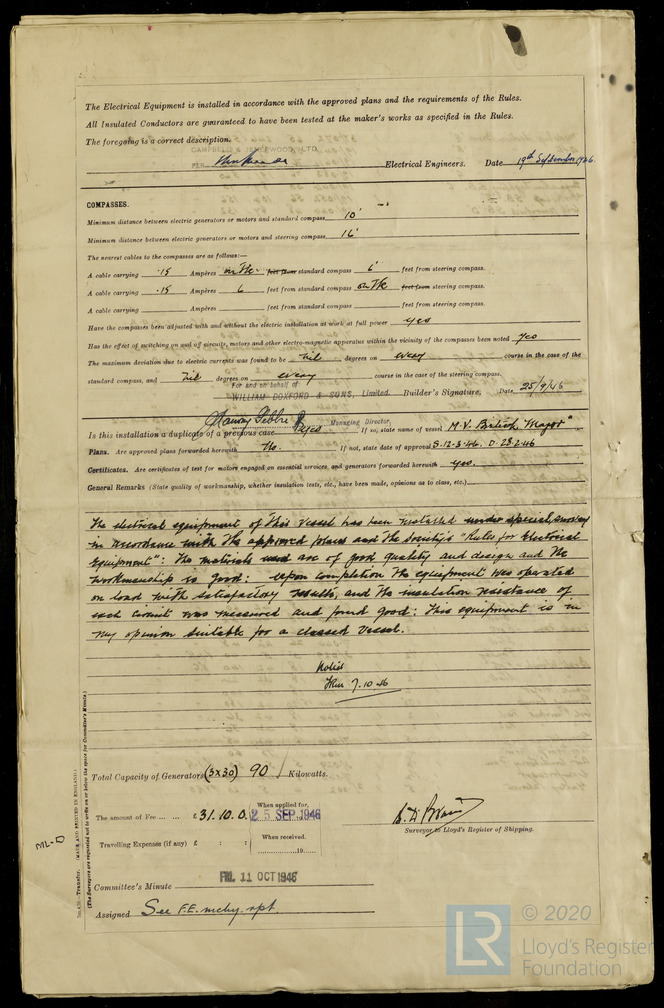 The Electrical Equipment is installed in accordance with the approved plans and the requirements of the Rules.
All Insulated Conductors are guaranteed to have been tested at the maker's works as specified in the Rules.
The foregoing is a correct description.
CAMPBELL & ISHERWOOD, LTD.
PER Electrical Engineers. Date 19th September 1946.
COMPASSES.
Minimum distance between electric generators or motors and standard compass 10'
Minimum distance between electric generators or motors and steering compass 16'
The nearest cables to the compasses are as follows:—
A cable carrying .15 Ampères on the feet from standard compass 6' feet from steering compass.
A cable carrying .15 Ampères 6 feet from standard compass on the feet from steering compass.
A cable carrying Ampères feet from standard compass feet from steering compass.
Have the compasses been adjusted with and without the electric installation at work at full power yes
Has the effect of switching on and off circuits, motors and other electro-magnetic apparatus within the vicinity of the compasses been noted yes
The maximum deviation due to electric currents was found to be Nil degrees on every course in the case of the
standard compass, and Nil degrees on every course in the case of the steering compass.
For and on behalf of
WILLIAM DOXFORD & SONS, Limited. Builder's Signature. Date 25/9/46
Managing Director,
Is this installation a duplicate of a previous case Yes If so, state name of vessel M.V. "British Major"
Plans. Are approved plans forwarded herewith No. If not, state date of approval S.12-3-46. D.28-2-46
Certificates. Are certificates of test for motors engaged on essential services, and generators forwarded herewith yes.
General Remarks (State quality of workmanship, whether insulation tests, etc., have been made, opinions as to class, etc.)
The electrical equipment of this vessel has been installed under special survey
in accordance with the approved plans and the Society's "Rules for Electrical
Equipment": The materials used are of good quality and design and the
workmanship is good: upon completion the equipment was operated
on load with satisfactory results, and the insulation resistance of
each circuit was measured and found good: This equipment is in
my opinion suitable for a classed vessel.
Noted
7.10.46
Total Capacity of Generators (3x30) 90 Kilowatts.
The amount of Fee £31.10.0. When applied for, 25 SEP 1946
Travelling Expenses (if any) £ : : When received. 19
Surveyor to Lloyd's Register of Shipping.
Committee's Minute FRI. 11 OCT 1946
Assigned See F.E. mchy. rpt.
Transfer. (MADE AND PRINTED IN ENGLAND.)
(The Surveyors are requested not to write on or below the space for Committee's Minute.)
ML-D
LR © 2020
Lloyd's Register
Foundation